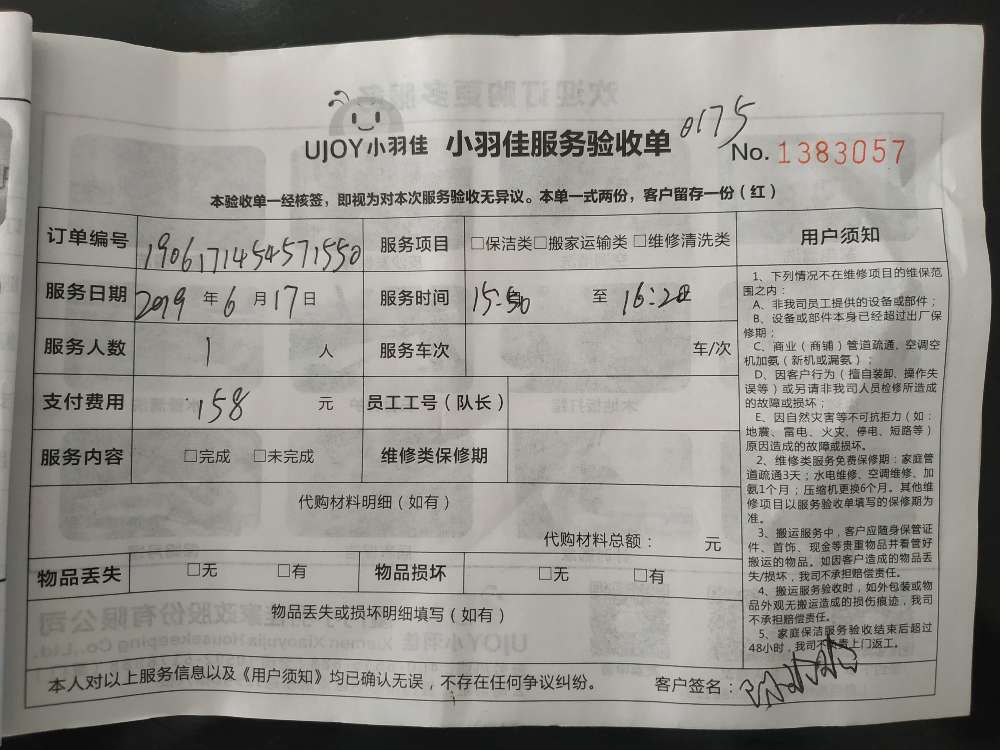 UJOY小羽佳 小羽佳服务验收单 0175
No. 1383057
本验收单一经核签，即视为对本次服务验收无异议。本单一式两份，客户留存一份（红）
订单编号 1906171454571550 服务项目 □保洁类□搬家运输类□维修清洗类
服务日期 2019 年 6 月 17 日 服务时间 15:50 至 16:20
服务人数 1 人 服务车次 车/次
支付费用 158 元 员工工号（队长）
服务内容 □完成 □未完成 维修类保修期
代购材料明细（如有）
代购材料总额： 元
物品丢失 □无 □有 物品损坏 □无 □有
物品丢失或损坏明细填写（如有）
本人对以上服务信息以及《用户须知》均已确认无误，不存在任何争议纠纷。 客户签名：
用户须知
1、下列情况不在维修项目的维保范
围之内：
A、非我司员工提供的设备或部件；
B、设备或部件本身已经超过出厂保
修期；
C、商业（商铺）管道疏通、空调空
机加氨（新机或漏氨）；
D、因客户行为（擅自装卸、操作失
误等）或另请非我司人员检修所造成
的故障或损坏；
E、因自然灾害等不可抗拒力（如：
地震、雷电、火灾、停电、短路等）
原因造成的故障或损坏。
2、维修类服务免费保修期：家庭管
道疏通3天；水电维修、空调维修、加
氨1个月；压缩机更换6个月。其他维
修项目以服务验收单填写的保修期为
准。
3、搬运服务中，客户应随身保管证
件、首饰、现金等贵重物品并看管好
搬运的物品。如因客户造成的物品丢
失/损坏，我司不承担赔偿责任。
4、搬运服务验收时，如外包装或物
品外观无搬运造成的损伤痕迹，我司
不承担赔偿责任。
5、家庭保洁服务验收结束后超过
48小时，我司不负责上门返工。